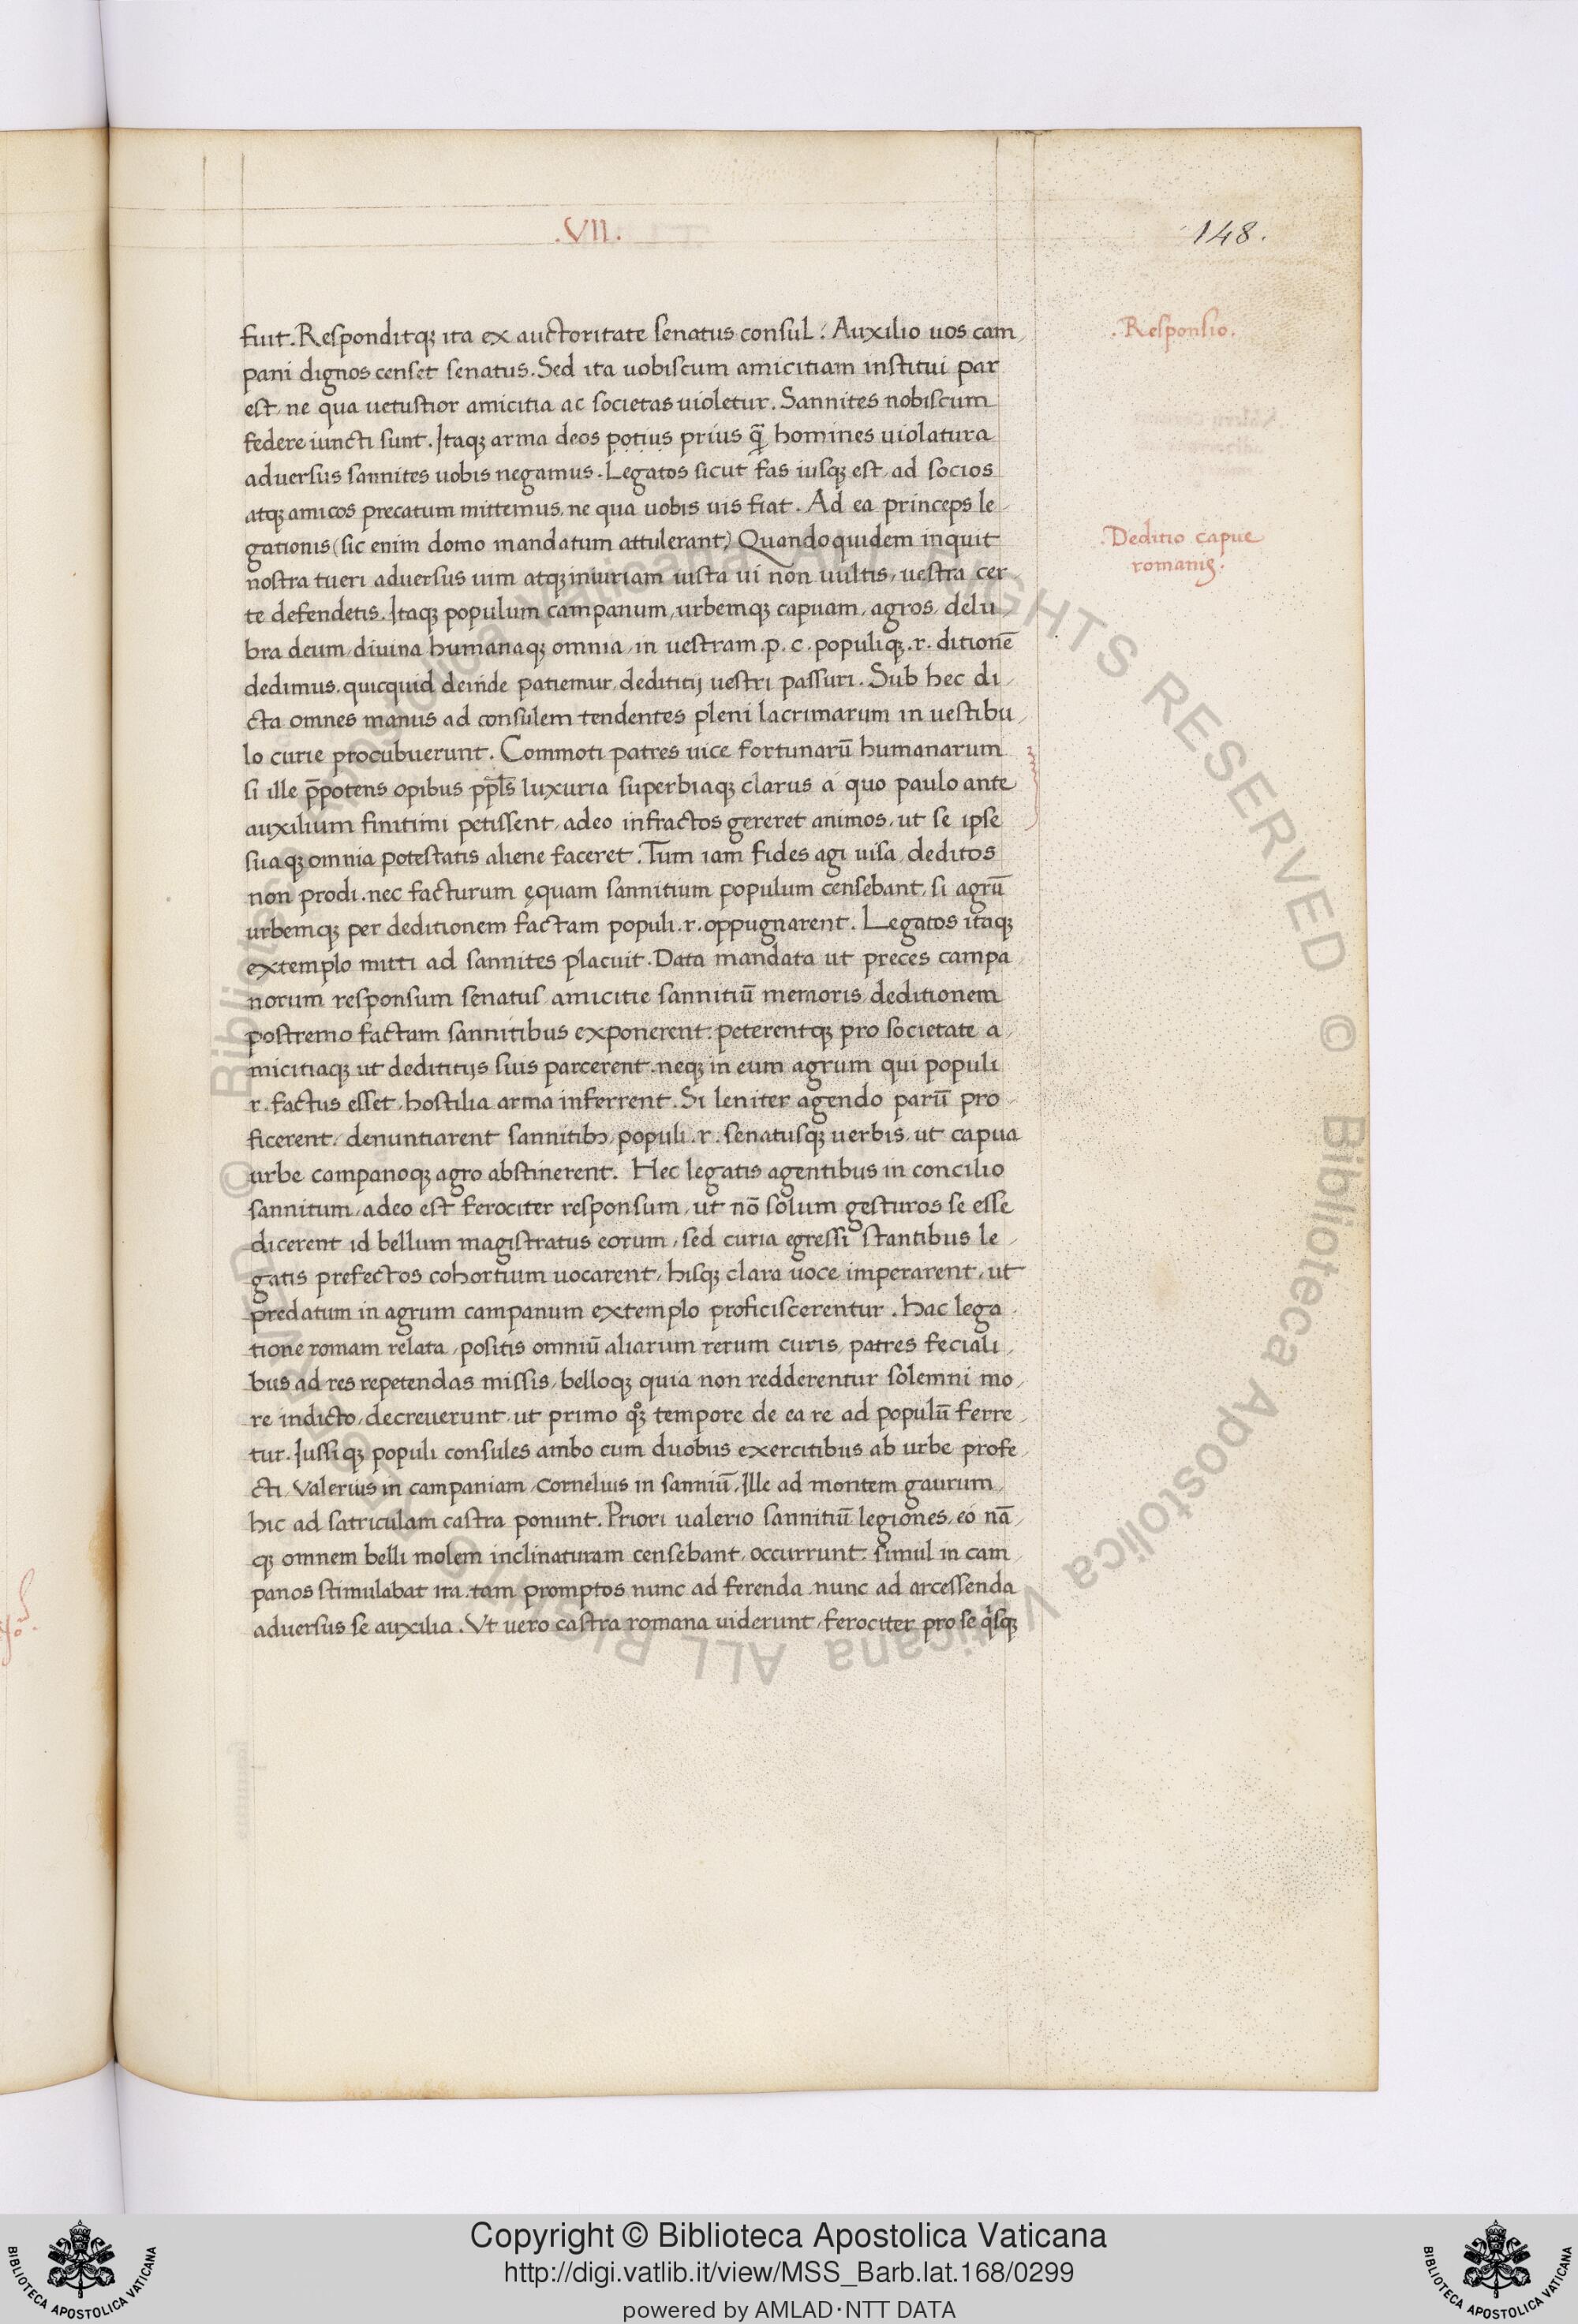 .VII.
148.
fuit. Responditqꝫ ita ex auctoritate senatus consul: Auxilio uos cam
. Responsio.
pani dignos censet senatus. Sed ita uobiscum amicitiam institui par
est, ne qua uetustior amicitia ac societas uioletur. Sannites nobiscum
federe iuncti sunt. Itaqꝫ arma deos potius prius q̄ homines uiolatura
aduersus sannites uobis negamus. Legatos sicut fas iusqꝫ est, ad socios
atqꝫ amicos precatum mittemus, ne qua uobis uis fiat. Ad ea princeps le
gationis (sic enim domo mandatum attulerant) Quandoquidem inquit
. Deditio capue
romanis.
nostra tueri aduersus uim atqꝫ iniuriam iusta ui non uultis, uestra cer
te defendetis. Itaqꝫ populum campanum, urbemqꝫ capuam, agros, delu
bra deum, diuina humanaqꝫ omnia, in uestram .p. c. populiqꝫ .r. ditionē
dedimus. quicquid deinde patiemur, dedititij uestri passuri. Sub hec di
cta omnes manus ad consulem tendentes pleni lacrimarum in uestibu
lo curie procubuerunt. Commoti patres uice fortunarū humanarum
si ille p̄potens opibus ppl̄s luxuria superbiaqꝫ clarus á quo paulo ante
auxilium finitimi petissent, adeo infractos gereret animos, ut se ipse
suaqꝫ omnia potestatis aliene faceret. Tum iam fides agi uisa, deditos
non prodi. nec facturum ęquam sannitium populum censebant, si agrū
urbemqꝫ per deditionem factam populi .r. oppugnarent. Legatos itaqꝫ
extemplo mitti ad sannites placuit. Data mandata ut preces campa
norum responsum senatus amicitie sannitiū memoris, deditionem
postremo factam sannitibus exponerent. peterentqꝫ pro societate a
micitiaqꝫ ut dedititijs suis parcerent. neqꝫ in eum agrum qui populi
r. factus esset, hostilia arma inferrent. Si leniter agendo parū pro
ficerent, denuntiarent sannitibꝫ, populi .r. senatusqꝫ uerbis, ut capua
urbe campanoqꝫ agro abstinerent. Hec legatis agentibus in concilio
sannitum, adeo est ferociter responsum, ut nō solum gesturos se esse
dicerent id bellum magistratus eorum, sed curia egressi stantibus le
gatis prefectos cohortium uocarent, hisqꝫ clara uoce imperarent, ut
predatum in agrum campanum extemplo proficiscerentur. Hac lega
tione romam relata, positis omniū aliarum rerum curis, patres feciali
bus ad res repetendas missis, belloqꝫ quia non redderentur solemni mo
re indicto, decreuerunt, ut primo qꝫ tempore de ea re ad populū ferre
tur. Iussiqꝫ populi consules ambo cum duobus exercitibus ab urbe profe
cti, Valerius in campaniam, Cornelius in sanniū. Ille ad montem gaurum,
hic ad satriculam castra ponunt. Priori ualerio sannitiū legiones, eó nā
qꝫ omnem belli molem inclinaturam censebant, occurrunt: simul in cam
panos stimulabat ira. tam promptos nunc ad ferenda nunc ad arcessenda
aduersus se auxilia. Vt uero castra romana uiderunt, ferociter pro se qͥsqꝫ
Copyright © Biblioteca Apostolica Vaticana
http://digi.vatlib.it/view/MSS_Barb.lat.168/0299
powered by AMLAD·NTT DATA
BIBLIOTECA APOSTOLICA VATICANA
BIBLIOTECA APOSTOLICA VATICANA
© Biblioteca Apostolica Vaticana ALL RIGHTS RESERVED
© Biblioteca Apostolica Vaticana ALL RIGHTS RESERVED